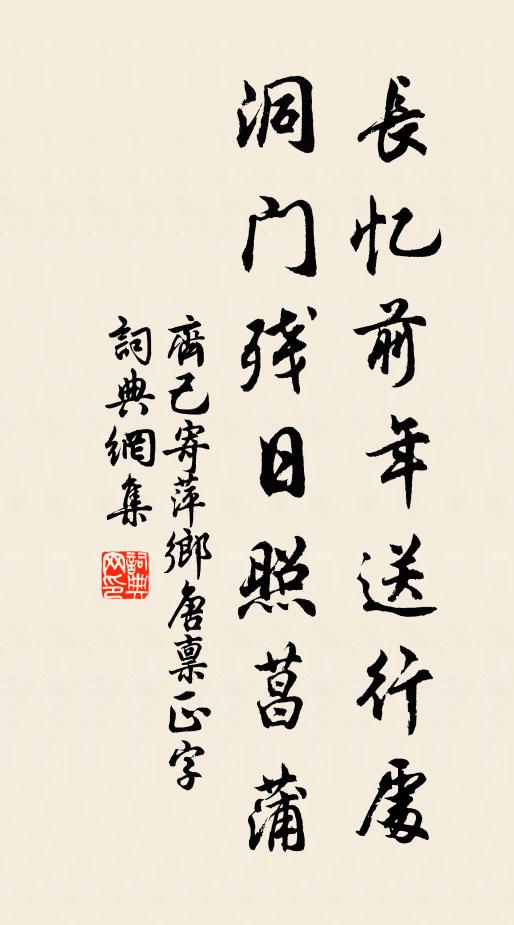 長忆前年送行處
洞门残日照菖蒲
齊己寄萍鄉唐稟正字
詞典網集
詞典网印